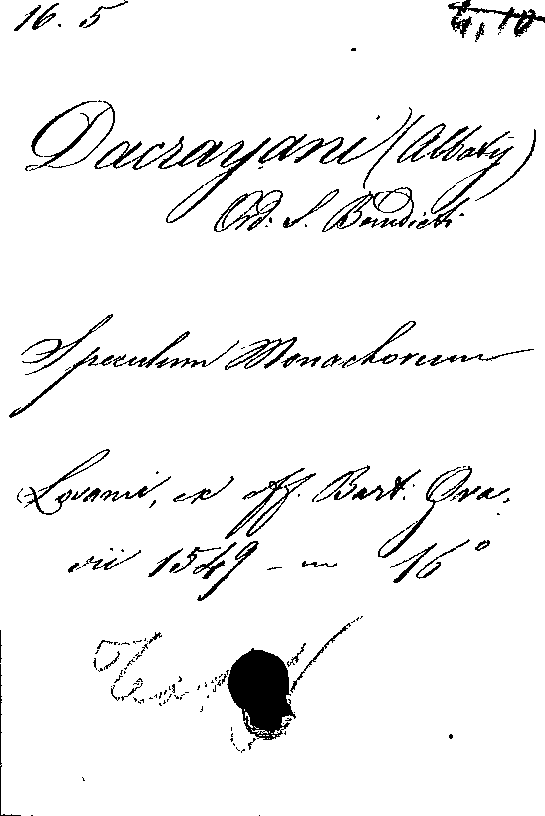 16. 5
Dacrayani (Abbaty)
Ord: S. Benedicti
Speculum Monachorum
Lovanii, ex off. Bart. Gra.
vii 1549 - in 16°